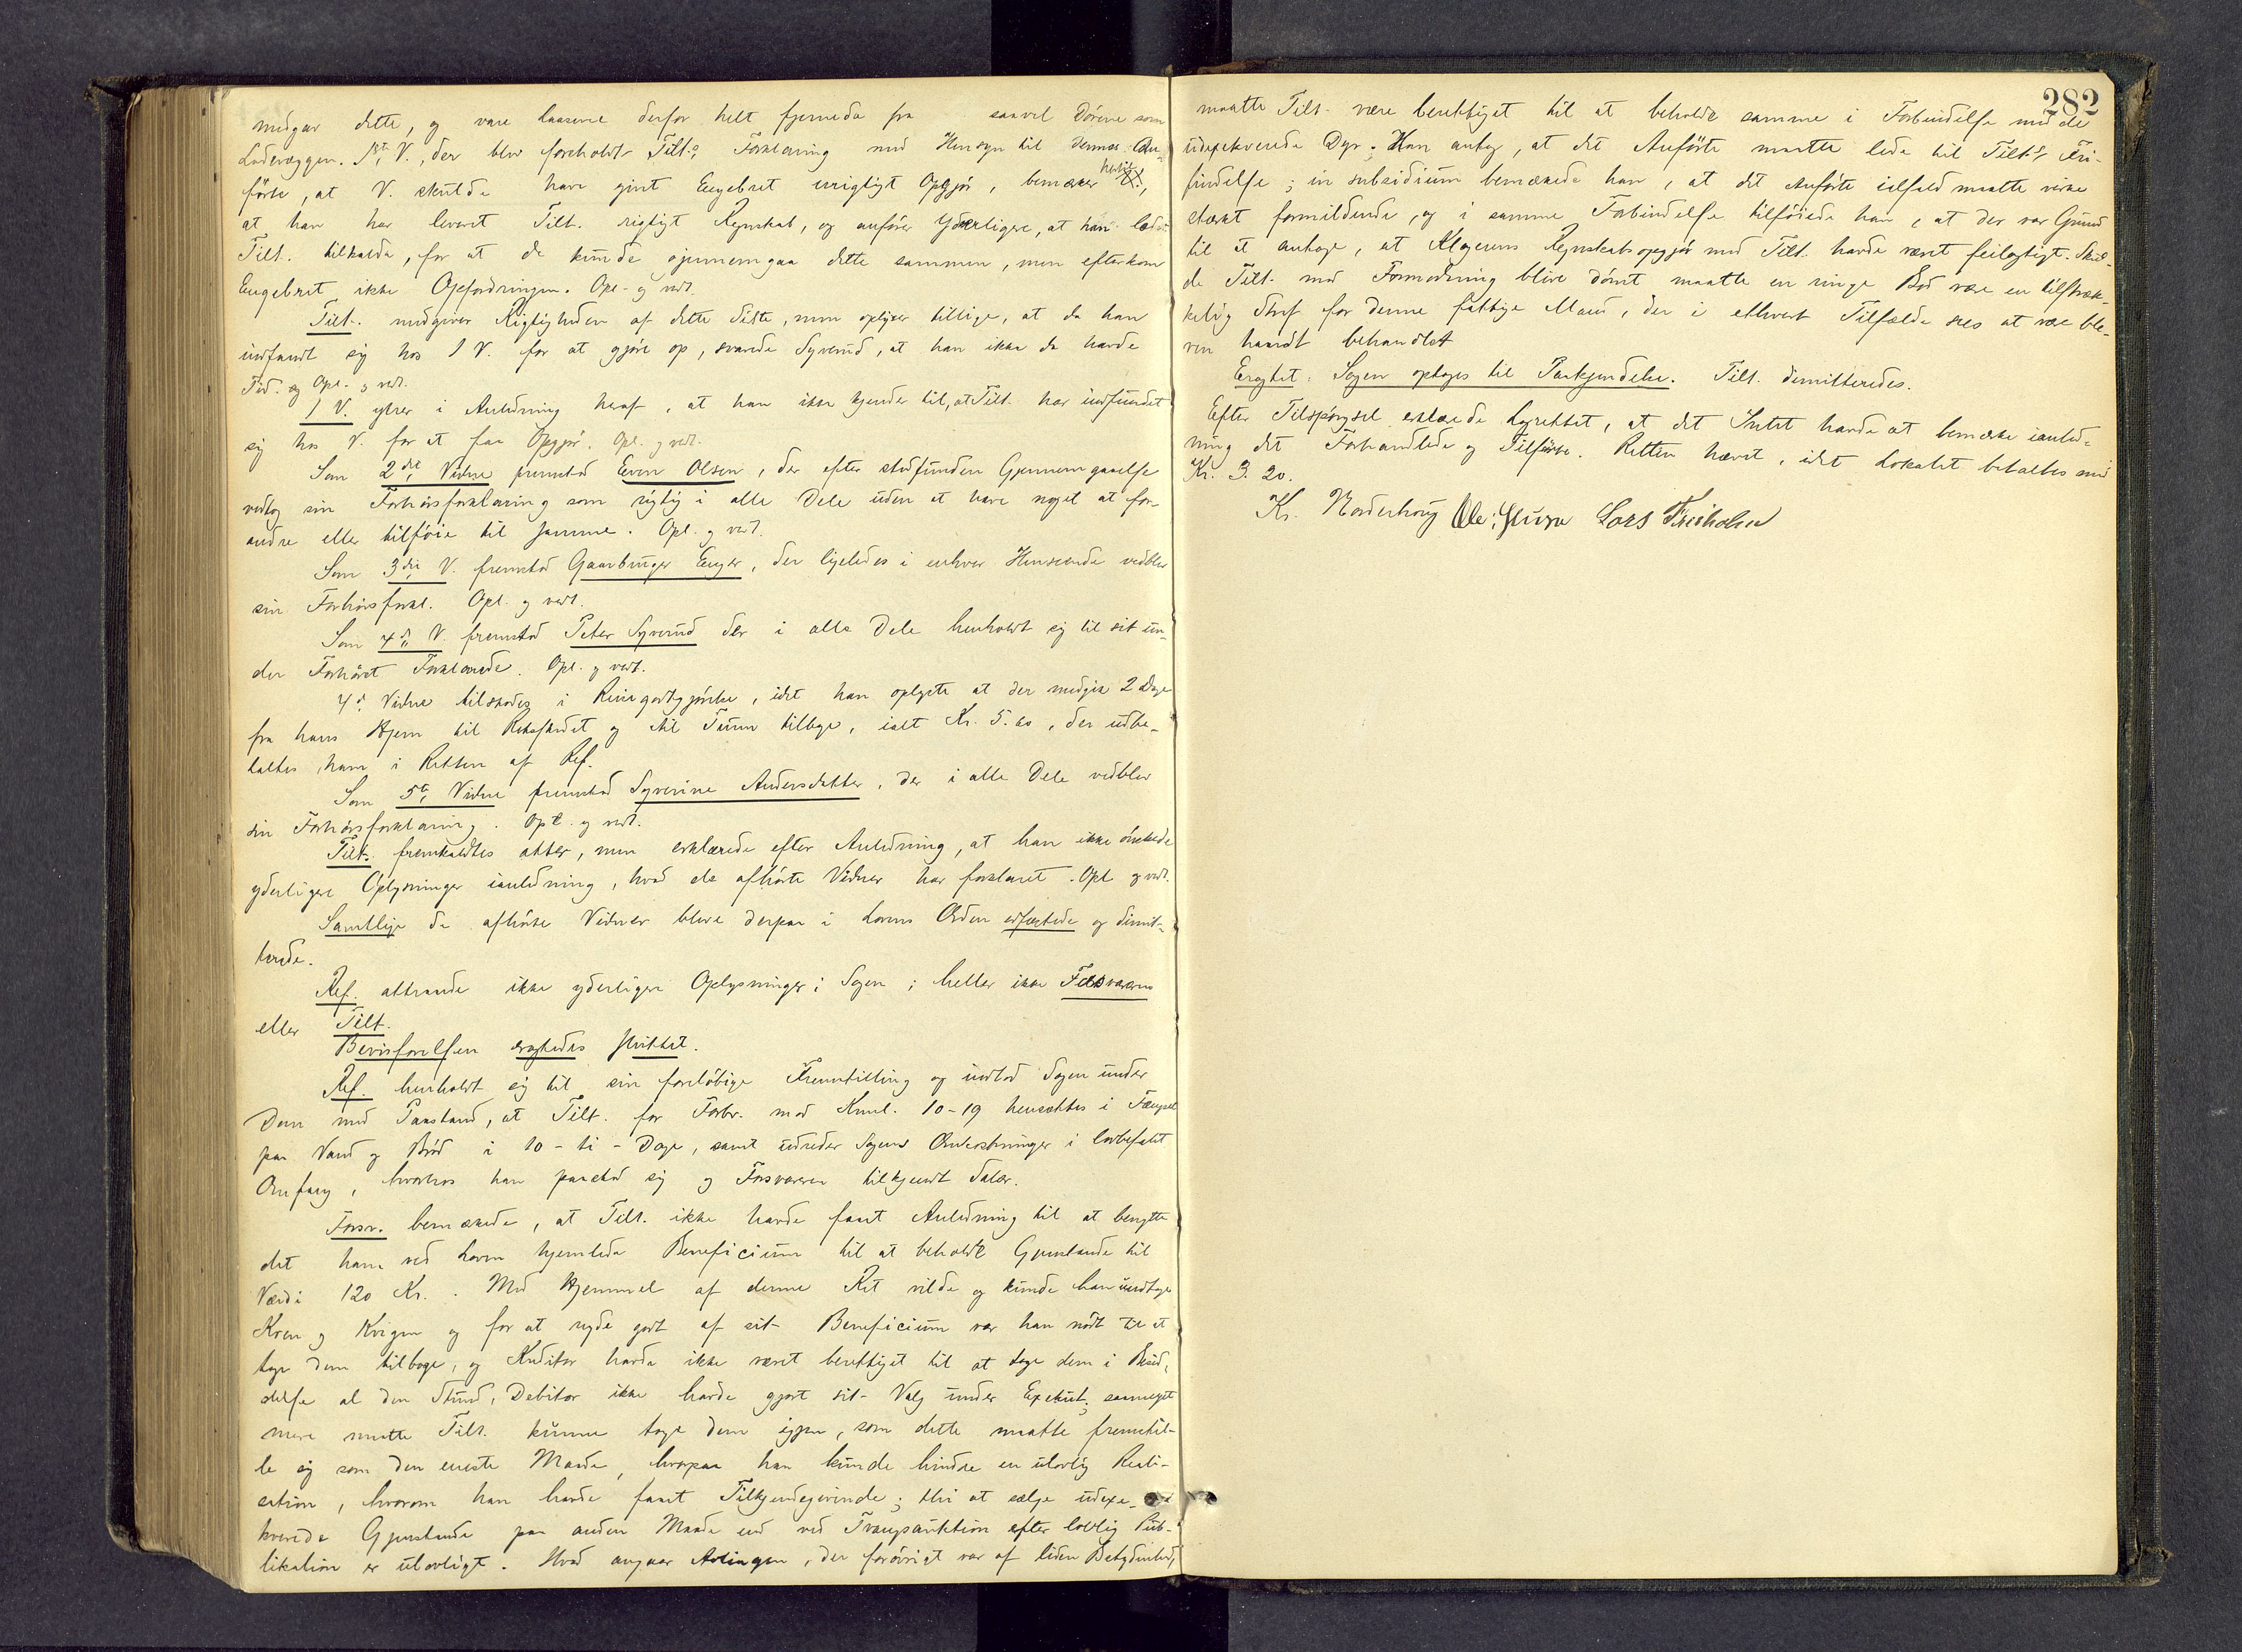 medgav dette, og vare Laasene derfor helt fjernede fra saavel Dörene som
Ladevæggen. 1ste V., der blev foreholdt Tilt.s Forklaring med Hensyn til dennes An-
förte, at V. skulde have givet Engebret urigtigt Opgjör, bemærker
at han har leveret Tilt. rigtigt Regnskab, og anförer yderligere, at han lod
Tilt. tilkalde, for at de kunde gjennemgaa dette sammen, men efterkom
Engebret ikke Opfordringen. Opl. og vedt.
Tilt. medgiver Rigtigheden af dette sidste, men oplyser tillige, at da han
indfandt sig hos 1 V. for at gjöre op, svarede Syverud, at han ikke da havde
Tid. og Opl. og vedt.
1 V. ytrer i Anledning heraf, at han ikke kjender til, at Tilt. har indfundet
sig hos V. for at faa Opgjör. Opl. og vedt.
Som 2det Vidne fremstod Even Olsen, der efter stedfunden Gjennemgaaelse
vedtog sin Forhörsforklaring som rigtig i alle Dele uden at have noget at for-
andre eller tilföie til samme. Opl. og vedt.
Som 3die V. fremstod Gaardbruger Enger, der ligeledes i enhver Henseende vedblev
sin Forhörsforkl. Opl. og vedt.
Som 4de V. fremstod Peter Syverud der i alle Dele henholdt sig til sit un-
der Forhöret Forklarede. Opl. og vedt.
4de Vidne tilstodes i Reisegodtgjörelse, idet han oplyste at der medgik 2 Dage
fra hans Hjem til Retsstedet og til Tuun tilbage, ialt Kr. 5.60, der udbe-
taltes ham i Retten af Ref.
Som 5te Vidne fremstod Syverine Andersdatter, der i alle Dele vedblev
sin Forhörsforklaring. Opl. og vedt.
Tilt. fremkaldtes atter, men erklærede efter Anledning, at han ikke önskede
yderligere Oplysninger ianledning, hvad de afhörte Vidner har forklaret. Opl. og vedt.
Samtlige de afhörte Vidner bleve derpaa i Lovens Orden edfæstede og dimit-
terede.
Ref. attraaede ikke yderligere Oplysninger i Sagen; heller ikke Forsvareren
eller Tilt.
Bevisförelsen eragtedes sluttet.
Ref. henholdt sig til sin foreløbige Fremstilling og indlod Sagen under
Dom med Paastand, at Tilt. for Forbr. mod Kriml. 10-19 hensættes i Fængsel
paa Vand og Bröd i 10 - ti - Dage, samt udreder Sagens Omkostninger i lovbefalet
Omfang, hvorhos han paastod sig og Forsvareren tilkjendt Salær.
Forsv. bemærkede, at Tilt. ikke havde faaet Anledning til at benytte
det ham ved Loven hjemlede Beneficium til at beholde Gjenstande til
Værdi 120 Kr. Med Hjemmel af denne Ret vilde og kunde han undtage
Koen og Kvigen og for at nyde godt af sit Beneficium var han nödt til at
tage dem tilbage, og Kreditor havde ikke været berettiget til at tage dem i Besid-
delse al den Stund, Debitor ikke havde gjort sit Valg under Exekut.; saameget
mere maatte Tilt. kunne tage dem igjen, som dette maatte fremstil-
le sig som den eneste Maade, hvorpaa han kunde hindre en ulovlig Reali-
sation, hvorom han havde faaet Tilkjendegivende; thi at sælge udexe-
kverede Gjenstande paa anden Maade end ved Tvangsauktion efter lovlig Pub-
likation er ulovligt. Hvad angaar Avlingen, der forövrigt var af liden Betydenhed,
282
maatte Tilt. være berettiget til at beholde samme i Forbindelse med de
udexekverede Dyr. Han antog, at det Anförte maatte lede til Tilt.s Fri-
findelse; in subsidium bemærkede han, at det Anförte ialfald maatte virke
stærkt formildende, og i samme Forbindelse tilföiede han, at der var Grund
til at antage, at Klagerens Regnskabsopgjör med Tilt. havde været feilagtigt. Skul-
de Tilt. mod Formodning blive dömt maatte en ringe Bod være en tilstræk-
kelig Straf for denne fattige Mand, der i ethvert Tilfælde sees at være ble-
ven haardt behandlet
Eragtet: Sagen optages til Paakjendelse. Tilt. dimitteredes.
Efter Tilspörgsel erklærede Lagrettet, at det Intet havde at bemærke ianled-
ning det Forhandlede og Tilförte. Retten hævet, idet Lokalet betaltes med
Kr. 3.20.
Kr. Norderhoug Ole Lars